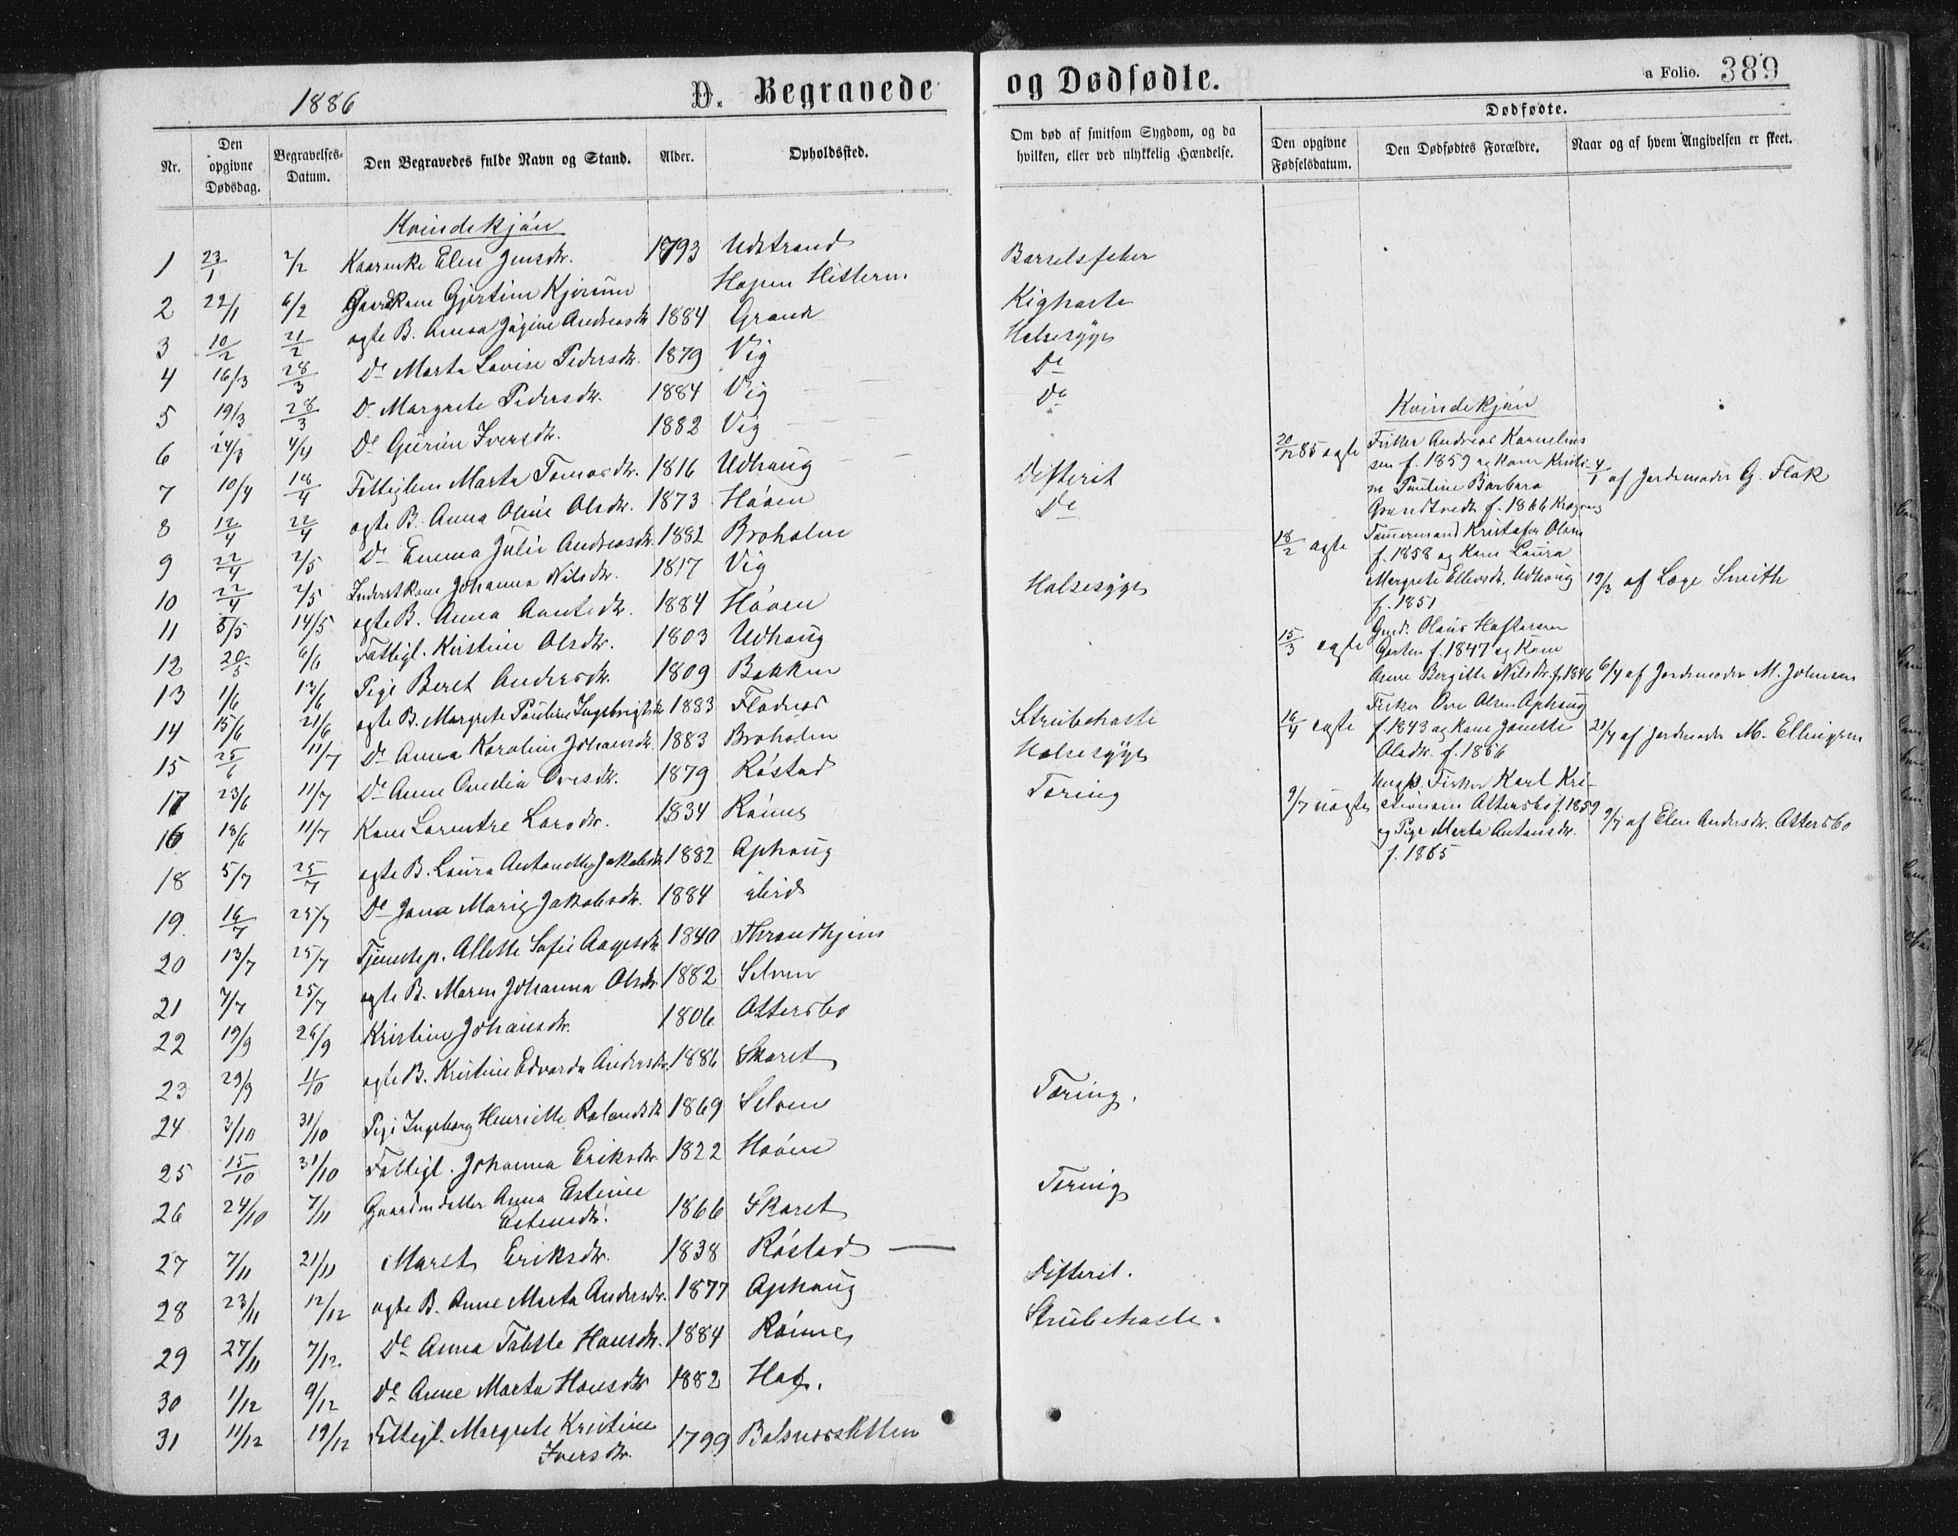 1886
D. Begravede og Dødfødte.
a Folio. 389
Nr.
Den opgivne Dødsdag.
Begravelses-Datum.
Den Begravedes fulde Navn og Stand.
Alder.
Opholdssted.
Om død af smitsom Sygdom, og da hvilken, eller ved ulykkelig Hændelse.
Dødfødte.
Den opgivne Fødselsdatum.
Den Dødfødtes Forældre.
Naar og af hvem Angivelsen er skeet.
Kvindekjön
1 23/1 2/2 Elen Jensdr. 1793 Udstrand
2 22/1 6/2 Gaardkone Gjertine Kjörum Hopen Hitteren Barselsfeber
3 10/2 21/2 ægte B. Anna Jögine Andreasdr 1884 Grande Kighoste
4 16/3 28/3 Do Marta Lovise Pedersdr. 1879 Vig Halsesyge
5 19/3 28/3 Do Margrete Pedersdr. 1884 Vig Do
6 24/3 4/4 Do Gurine Iversdr. 1882 Vig Do
7 10/4 18/4 Fattiglem Marta Tomasdr. 1816 Udhaug
8 12/4 22/4 ægte B. Anna Oline Olsdr. 1873 Höoen Difterit
9 22/4 2/5 Do Emma Julie Andreasdr. 1882 Broholm Do
10 22/4 2/5 Inderstkone Johanna Nilsdr. 1817 Vig
11 5/5 14/5 ægte B. Anna Arntsdr. 1884 Höoen Halsesyge
12 20/5 6/6 Fattigl. Kirstine Olsdr. 1803 Udhaug
13 1/6 13/6 Pige Beret Andersdr. 1809 Bakken
14 15/6 21/6 ægte B. Margrete Pauline Ingebrigtsdr 1883 Flatnes Strubehoste
15 25/6 11/7 Do Anna Karoline Johansdr. 1883 Broholm Halsesyge
17 23/6 11/7 Do Anne Ovedia Ovesdr. 1879 Röstad Tæring
16 18/6 11/7 Kone Lorentse Larsdr. 1834 Rönne
18 5/7 25/7 ægte B. Laura Antonette Jakobsdr 1882 Aphaug
19 16/7 25/7 Do Jana Marie Jakobsdr. 1884 ibid
20 13/7 25/7 Tjenestep. Allette Sofie Aagesdr 1840 Throndhjem
21 7/7 25/7 ægte B. Maren Johanna Olsdr 1882 Selven
22 19/9 26/9 Kristine Johansdr. 1806 Ottersbo
23 29/9 11/10 ægte B. Kristine Edvarda Andersdr. 1886 Skaret
24 3/10 31/10 Pige Ingeborg Henriette Rolandsdr 1869 Selven Tæring.
25 15/10 31/10 Fattigl. Johanna Eriksdr. 1822 Hoöen
26 24/10 7/11 Gaardmdatter Anna Estine
Estensdr. 1866 Skaret Tæring
27 7/11 21/11 Maret Eriksdr. 1838 Röstad
28 23/11 12/12 ægte B. Anne Marta Andersdr. 1877 Aphaug Difterit.
29 27/11 7/12. Do Anna Tabste Hansdr. 1884 Rönne Strubehoste.
30 1/12 9/12 Do Anne Marta Hansdr 1882 Hof.
31 11/12 19/12 Fattigl. Margrete Kristine
Iversdr. 1799 Balsnessletten
Kvindekjön
20/12 85 ægte Fisker Andreas Kornelius
sen f. 1859 og Kone Kristi-
ne Pauline Barbara 4/1 af Jordemoder G. Flak
f. 1866
18/2 ægte Tömmermand Kristofer Olsen
f. 1858 og Kone Laura
Margrete Ellevsdr. Udhaug 19/3 af Læge Smith
f. 1851
15/3 ægte Gmd. Olaus Haftorsen
Garten f. 1847 og Kone
Anne Bergitte Nilsdr. f. 1846 6/4 af Jordemoder M. Johnsen
16/4 ægte Fisker Ove Olsen Aphaug
f. 1843 og Kone Janette 21/4 af Jordmoder M. Ellingsen
Olsdr. f. 1856
9/7 uægte Ungk. Fisker Karl Kri-
stiansen Ottersbo f. 1859
og Pige Marta Antonsdr. 9/7 af Elen Andersdr. Ottersbo
f. 1865